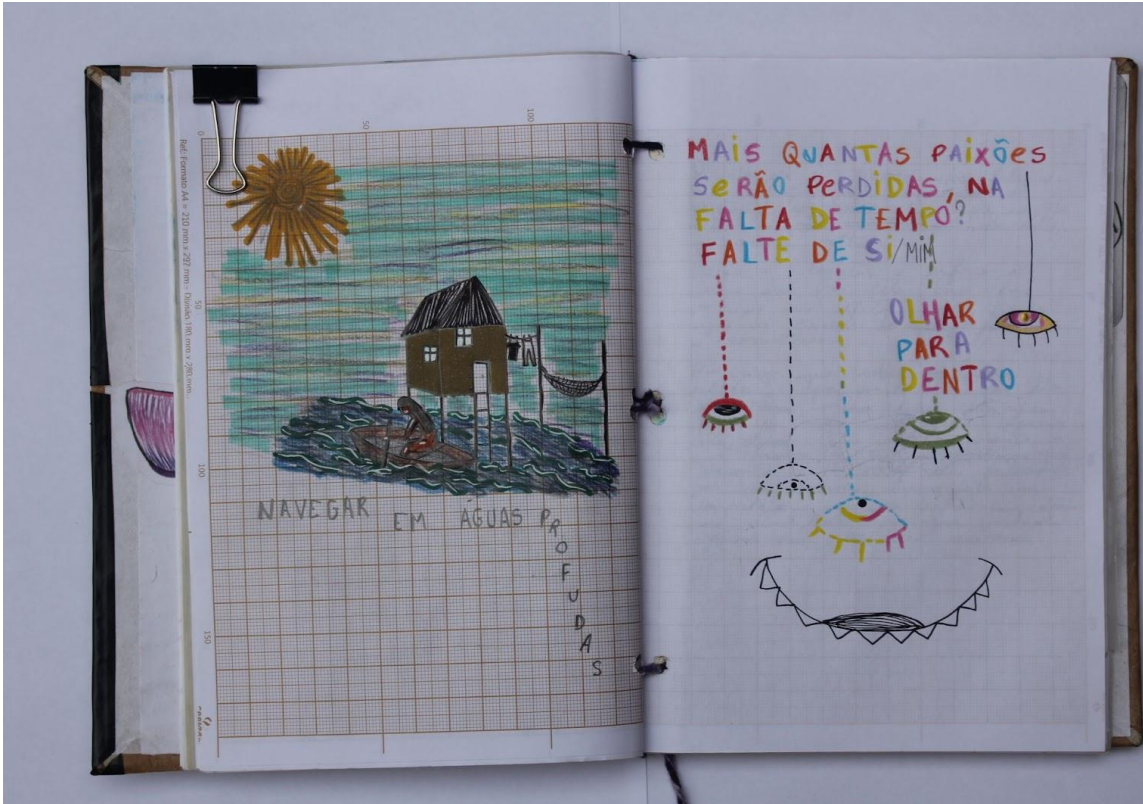 Ref.: Formato A4 = 210 mm x 297 mm - Divisão 180 mm x 280 mm
0
50
100
50
100
150
NAVEGAR EM ÁGUAS PROFUDAS
MAiS QUANTAS PAiXÕeS
SeRÃO PeRDiDAS, NA
FALTA DE TEMPÓ?
FALTE DE Si/MiM
OLHAR
PARA
DENTRO